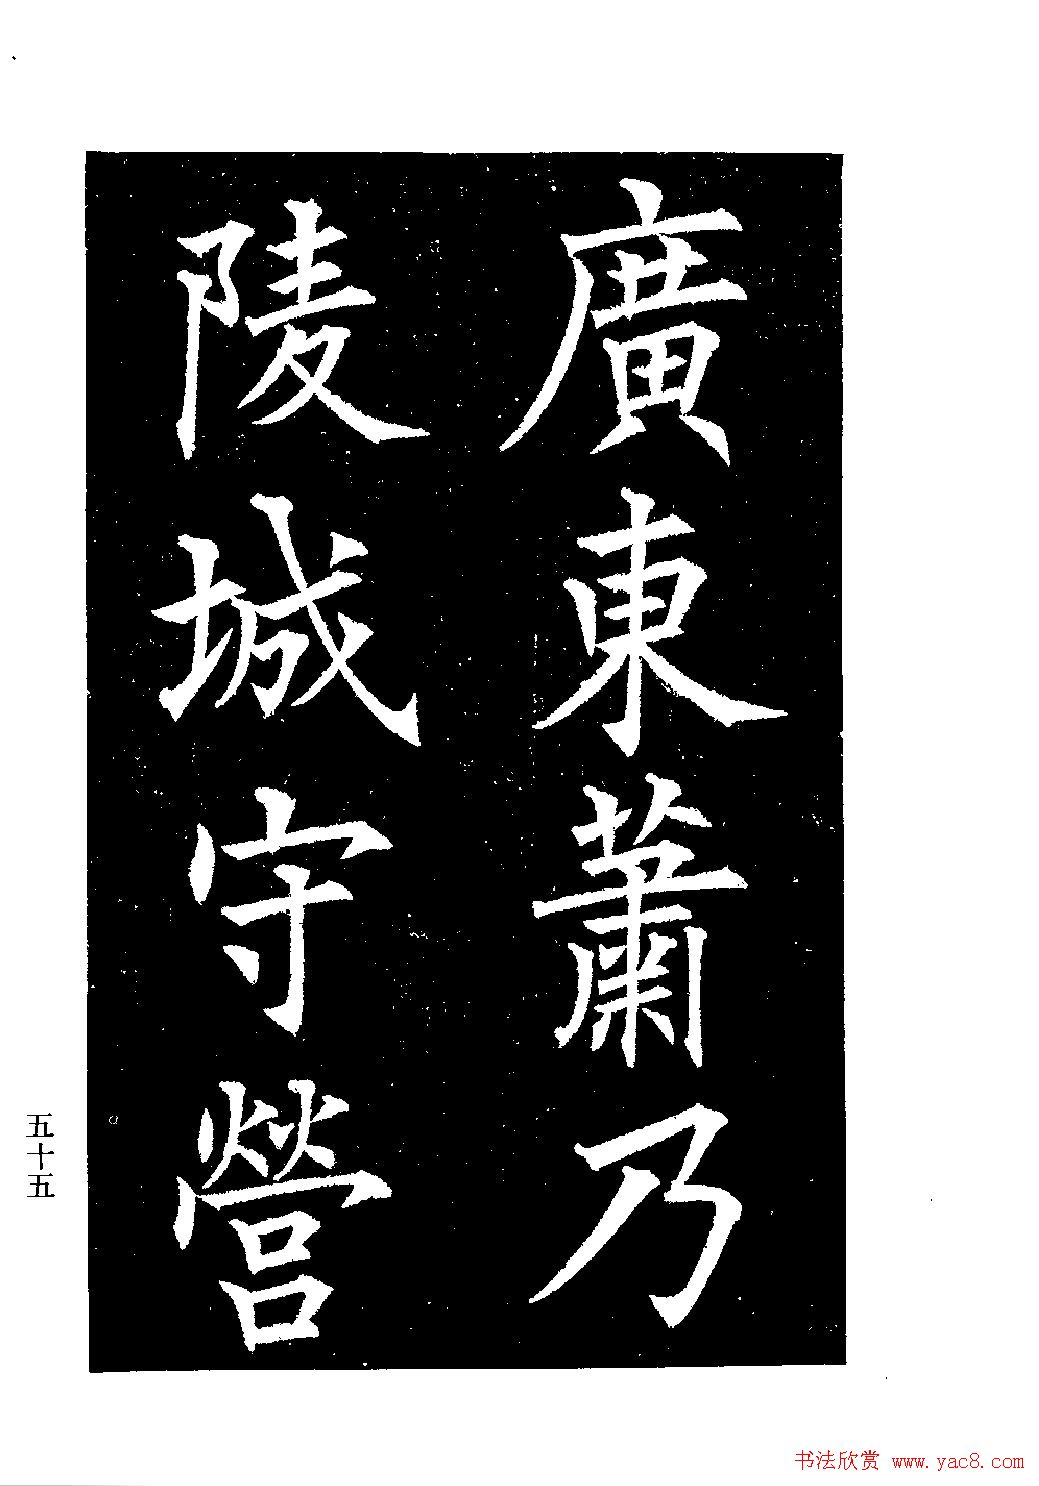 廣東蕭乃
陵城守營
五十五
书法欣赏 www.yac8.com